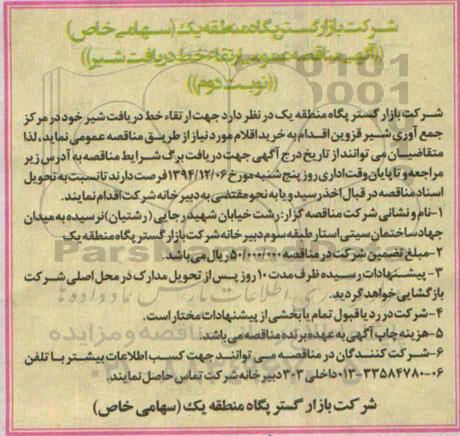 شرکت بازار گستر پگاه منطقه یک (سهامی خاص)
((آگهی مناقصه عمومی ارتقاء خط دریافت شیر))
((نوبت دوم))
شرکت بازار گستر پگاه منطقه یک در نظر دارد جهت ارتقاء خط دریافت شیر خود در مرکز
جمع آوری شیر قزوین اقدام به خرید اقلام مورد نیاز از طریق مناقصه عمومی نماید، لذا
متقاضیان می توانند از تاریخ درج آگهی جهت دریافت برگ شرایط مناقصه به آدرس زیر
مراجعه و تا پایان وقت اداری روز پنج شنبه مورخ ۱۳۹۴/۱۲/۰۶ فرصت دارند تا نسبت به تحویل
اسناد مناقصه در قبال اخذ رسید و یا به نحو مقتضی به دبیر خانه شرکت اقدام نمایند.
۱-نام و نشانی شرکت مناقصه گزار: رشت خیابان شهید رجایی (رشتیان) نرسیده به میدان
جهاد ساختمان سیتی استار طبقه سوم دبیر خانه شرکت بازار گستر پگاه منطقه یک
۲-مبلغ تضمین شرکت در مناقصه ۵۰/۰۰۰/۰۰۰ ریال می باشد.
۳-پیشنهادات رسیده ظرف مدت ۱۰ روز پس از تحویل مدارک در محل اصلی شرکت
بازگشایی خواهد گردید.
۴-شرکت در رد یا قبول تمام یا بخشی از پیشنهادات مختار است.
۵-هزینه چاپ آگهی به عهده برنده مناقصه می باشد.
۶-شرکت کنندگان در مناقصه می توانند جهت کسب اطلاعات بیشتر با تلفن
۰۱۳-۳۳۵۸۴۷۸۰-۰۶ داخلی ۳۰۳ دبیر خانه شرکت تماس حاصل نمایند.
شرکت بازار گستر پگاه منطقه یک (سهامی خاص)